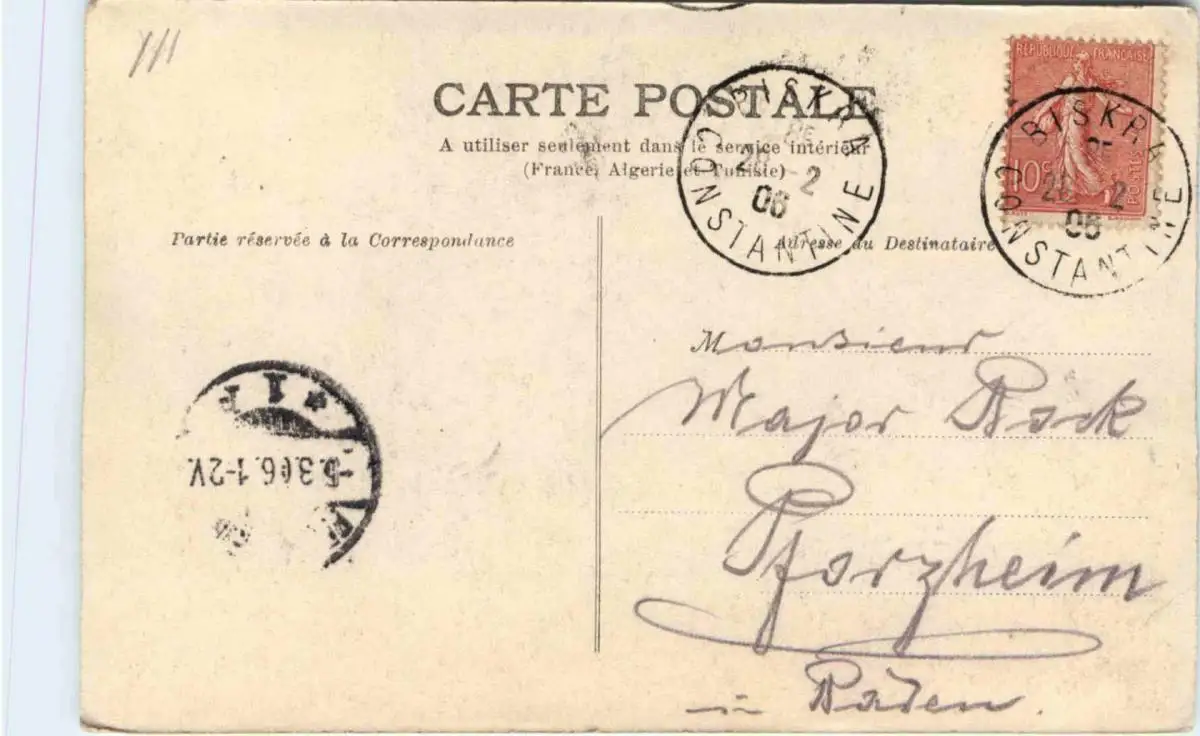 CARTE POSTALE
A utiliser seulement dans le service intérieur
(France, Algerie et Tunisie)
Partie réservée à la Correspondance
Adresse du Destinataire
RÉPUBLIQUE FRANÇAISE
10c
POSTES
BISKRA
28 2
06
CONSTANTINE
BISKRA
28 2
06
CONSTANTINE
Monsieur
Major Bock
Pforzheim
in Baden.
* 1 P
-5.3.06.1-2V.